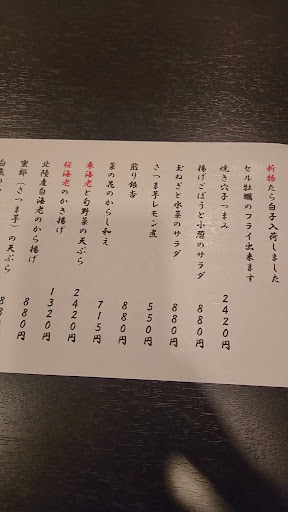 新物たら白子入荷しました
セル牡蠣のフライ出来ます
焼き穴子つまみ 2420円
揚げごぼうと小葱のサラダ 880円
玉ねぎと水菜のサラダ 880円
さつま芋レモン煮 550円
煎り銀杏 880円
菜の花のからし和え 715円
車海老と旬野菜の天ぷら 2420円
桜海老のかき揚げ 1320円
北陸産白海老のから揚げ 880円
里郎(さつま芋)の天ぷら 880円